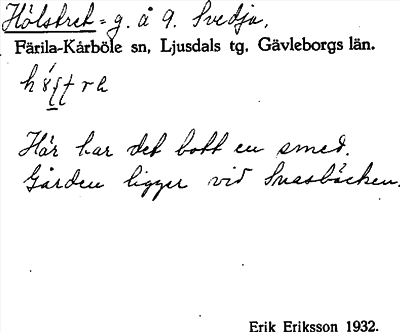 Hölstret = g. å 9. Svedja.
Färila-Kårböle sn, Ljusdals tg. Gävleborgs län.
Här har det bott en smed.
Gården ligger vid Snasbäcken.
Erik Eriksson 1932.